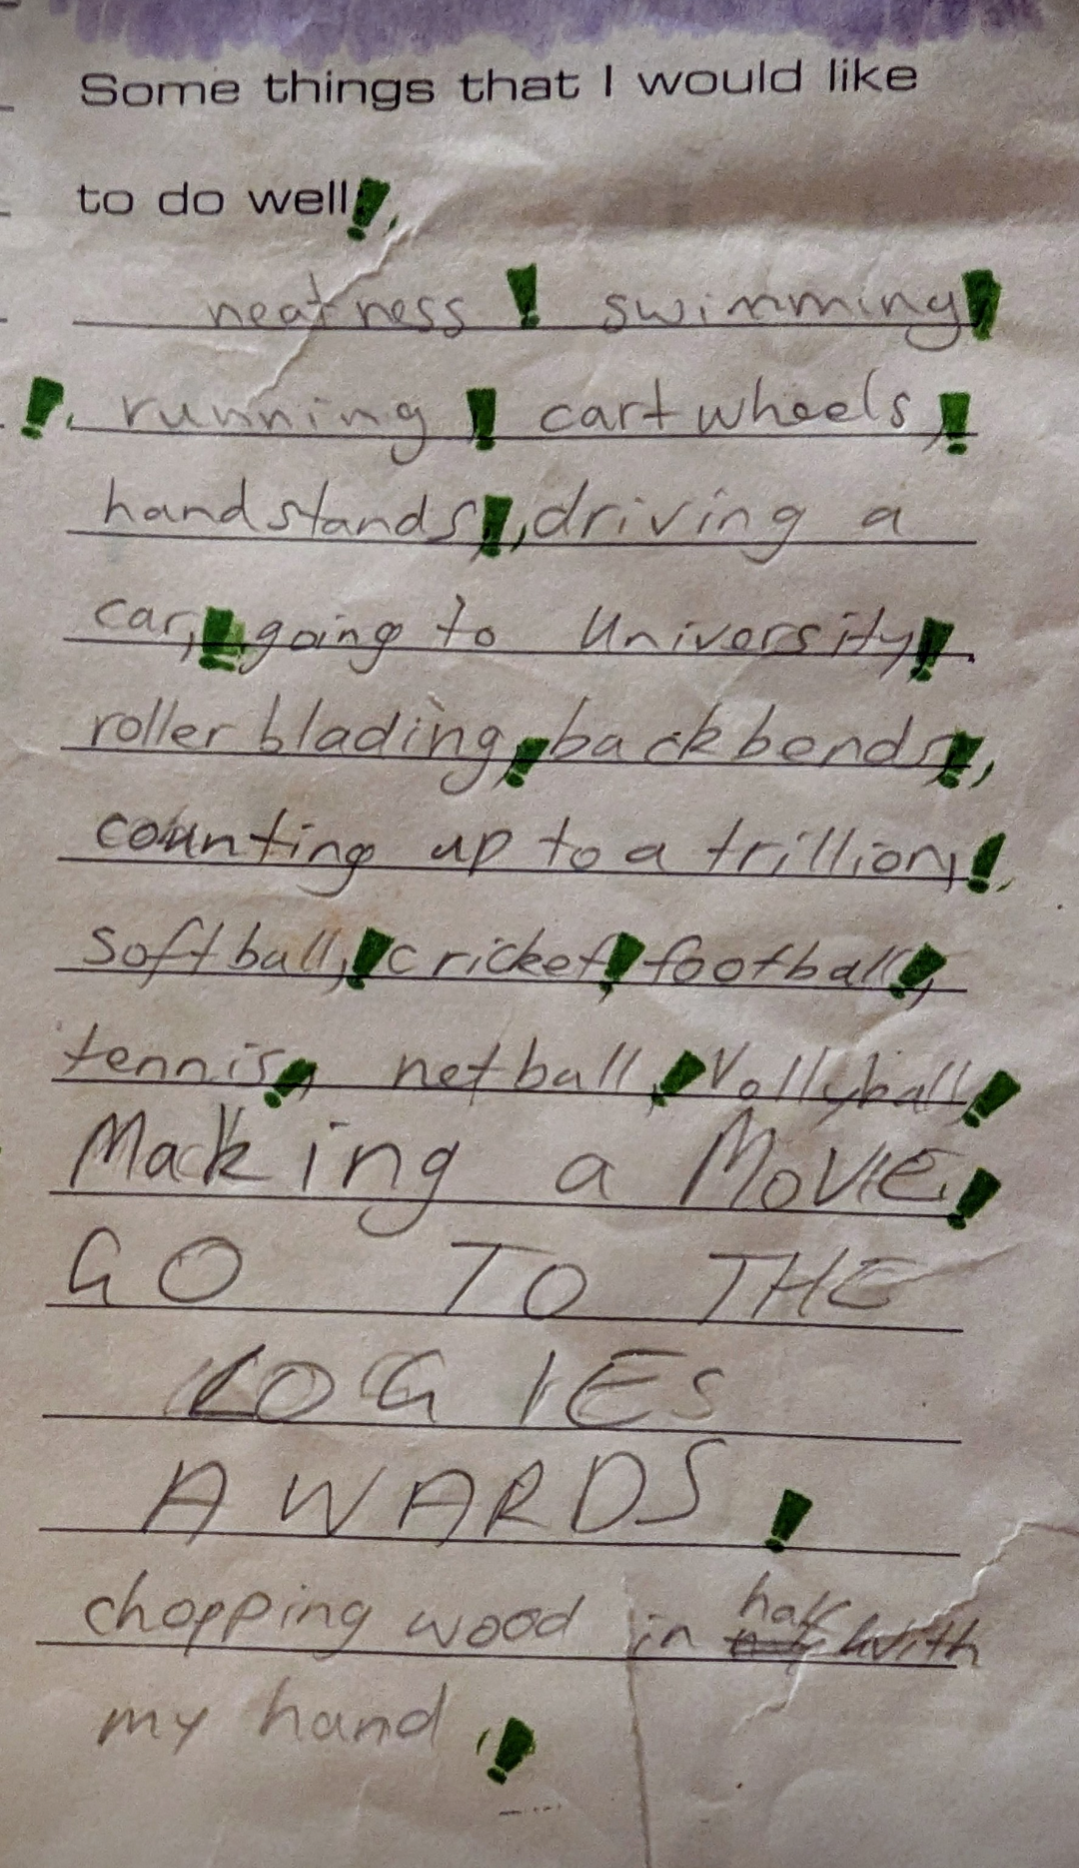 Some things that I would like
to do well!,
neatness ! swimming!
!, running ! cartwheels,!
handstands!,driving a
car,! going to University!.
roller blading,! backbends!,
counting up to a trillion,!,
softball,! cricket! football!,
tennis!, netball,! Vollyball!
Macking a MOVIE,!
GO TO THE
LOGIES
AWARDS !
chopping wood in half with
my hand !